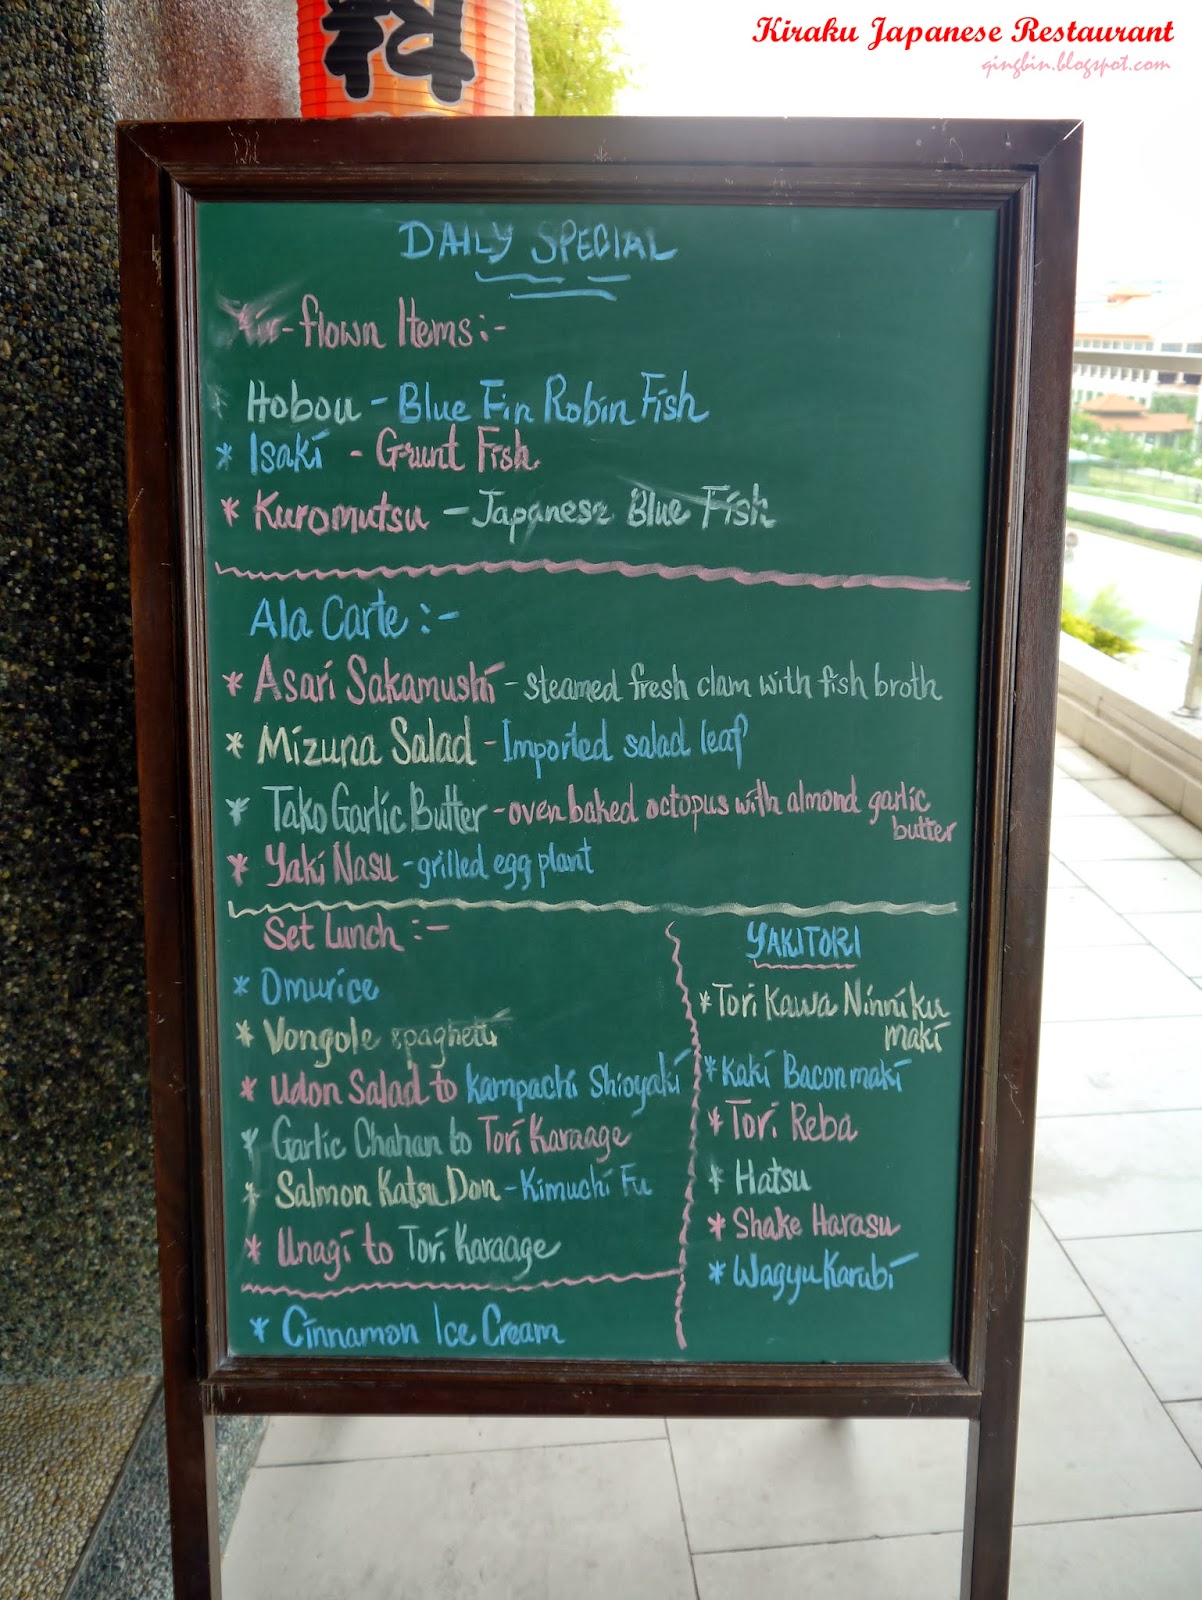 Kiraku Japanese Restaurant
qingbin.blogspot.com
DAILY SPECIAL
Air-flown Items:-
Hobou - Blue Fin Robin Fish
* Isaki - Grunt Fish
* Kuromutsu - Japanese Blue Fish
Ala Carte :-
* Asari Sakamushi - steamed fresh clam with fish broth
* Mizuna Salad - Imported salad leaf
* Tako Garlic Butter - oven baked octopus with almond garlic
butter
* Yaki Nasu - grilled egg plant
Set Lunch :-
* Omurice
* Vongole spaghetti
* Udon Salad to Kampachi Shioyaki
* Garlic Chahan to Tori Karaage
* Salmon Katsu Don - Kimuchi Fu
* Unagi to Tori Karaage
* Cinnamon Ice Cream
YAKITORI
* Tori Kawa Ninniku
maki
* Kaki Bacon maki
* Tori Reba
* Hatsu
* Shake Harasu
* Wagyu Karubi